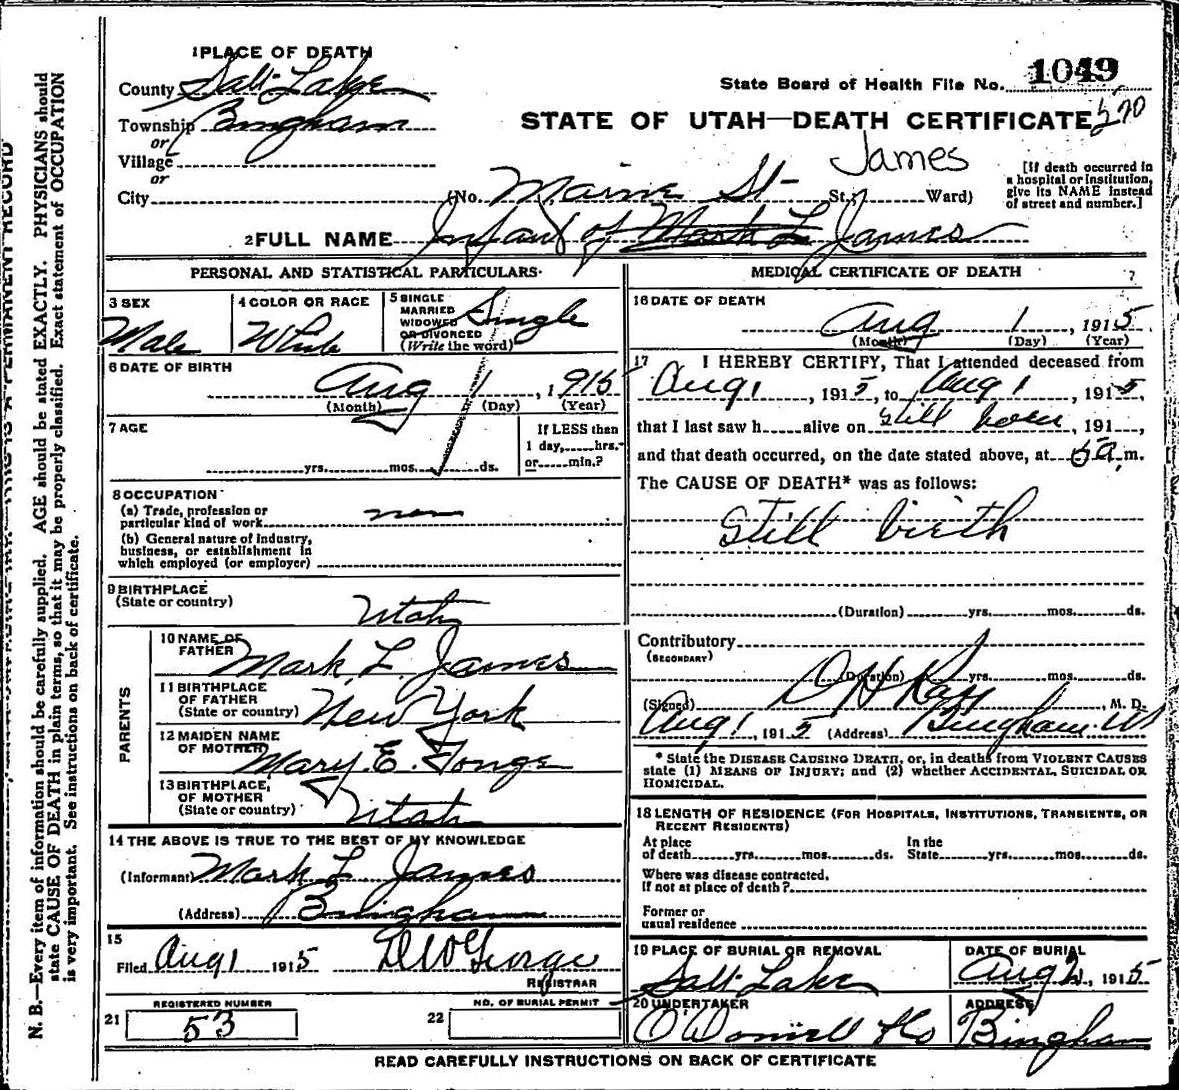 1 PLACE OF DEATH
County Salt Lake
Township Bingham
or
Village
or
City
State Board of Health File No. 1049
STATE OF UTAH—DEATH CERTIFICATE 570
James
(No. Maine St St.; Ward)
[If death occurred in a hospital or institution, give its NAME instead of street and number.]
2 FULL NAME Infant of Mark L James
PERSONAL AND STATISTICAL PARTICULARS
3 SEX
Male
4 COLOR OR RACE
White
5 SINGLE
MARRIED
WIDOWED
OR DIVORCED
(Write the word)
Single
6 DATE OF BIRTH
Aug 1, 1915
(Month) (Day) (Year)
7 AGE
yrs. mos. ds.
If LESS than
1 day, hrs.
or min.?
8 OCCUPATION
(a) Trade, profession or
particular kind of work
(b) General nature of industry,
business, or establishment in
which employed (or employer)
9 BIRTHPLACE
(State or country) Utah
PARENTS
10 NAME OF
FATHER Mark L. James
11 BIRTHPLACE
OF FATHER
(State or country) New York
12 MAIDEN NAME
OF MOTHER Mary E.
13 BIRTHPLACE,
OF MOTHER
(State or country) Utah
14 THE ABOVE IS TRUE TO THE BEST OF MY KNOWLEDGE
(Informant) Mark L James
(Address) Bingham
15
Filed Aug 1 1915 George
REGISTRAR
REGISTERED NUMBER
21 53
NO. OF BURIAL PERMIT
22
MEDICAL CERTIFICATE OF DEATH
16 DATE OF DEATH
Aug 1, 1915
(Month) (Day) (Year)
17 I HEREBY CERTIFY, That I attended deceased from
Aug 1, 1915, to Aug 1, 1915,
that I last saw h alive on still born, 191 ,
and that death occurred, on the date stated above, at 5 a. m.
The CAUSE OF DEATH* was as follows:
Still birth
(Duration) yrs. mos. ds.
Contributory
(SECONDARY)
(Duration) yrs. mos. ds.
(Signed) , M. D.
Aug 1, 1915 (Address) Bingham
* State the DISEASE CAUSING DEATH, or, in deaths from VIOLENT CAUSES
state (1) MEANS OF INJURY; and (2) whether ACCIDENTAL, SUICIDAL OR
HOMICIDAL.
18 LENGTH OF RESIDENCE (FOR HOSPITALS, INSTITUTIONS, TRANSIENTS, OR
RECENT RESIDENTS)
At place
of death yrs. mos. ds.
In the
State yrs. mos. ds.
Where was disease contracted,
If not at place of death?
Former or
usual residence
19 PLACE OF BURIAL OR REMOVAL
Salt Lake
DATE OF BURIAL
Aug 2, 1915
20 UNDERTAKER
ADDRESS
Bingham
READ CAREFULLY INSTRUCTIONS ON BACK OF CERTIFICATE
N. B.—Every item of information should be carefully supplied. AGE should be stated EXACTLY. PHYSICIANS should
state CAUSE OF DEATH in plain terms, so that it may be properly classified. Exact statement of OCCUPATION
is very important. See instructions on back of certificate.